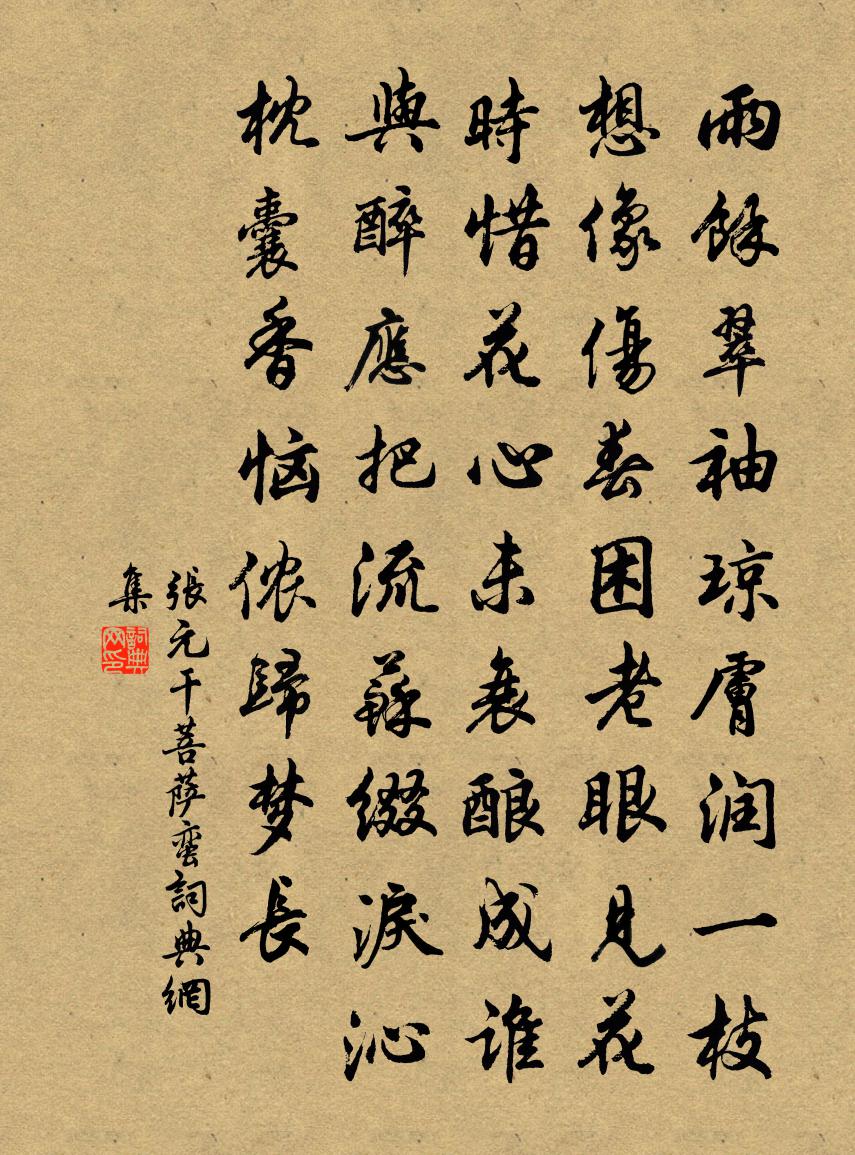 雨餘翠袖琼膚润一枝
想像傷春困老眼見花
時惜花心未衰酿成谁
與醉應把流蘇缀淚沁
枕囊香恼侬歸梦長
張元干菩萨蛮詞典網
集
詞典网印